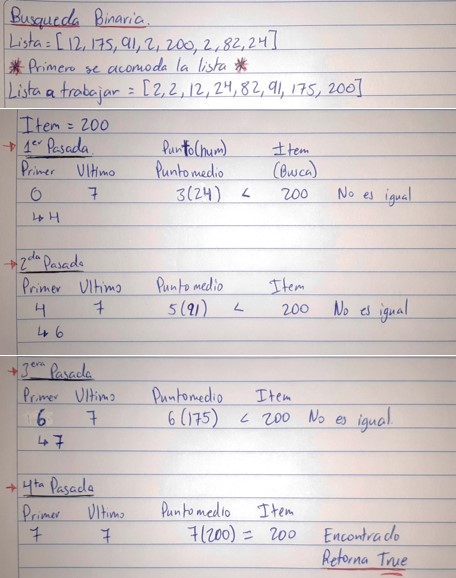 Busqueda Binaria.
Lista = [12, 175, 91, 2, 200, 2, 82, 24]
* Primero se acomoda la lista *
Lista a trabajar = [2, 2, 12, 24, 82, 91, 175, 200]
Item = 200
→ 1er Pasada. Punto(num) Item
Primer Ultimo Puntomedio (Busca)
0 7 3(24) < 200 No es igual
↳ 4
→ 2da Pasada
Primer Ultimo Puntomedio Item
4 7 5(91) < 200 No es igual
↳ 6
→ 3era Pasada
Primer Ultimo Puntomedio Item
6 7 6(175) < 200 No es igual.
↳ 7
→ 4ta Pasada
Primer Ultimo Puntomedio Item
7 7 7(200) = 200 Encontrado
Retorna True